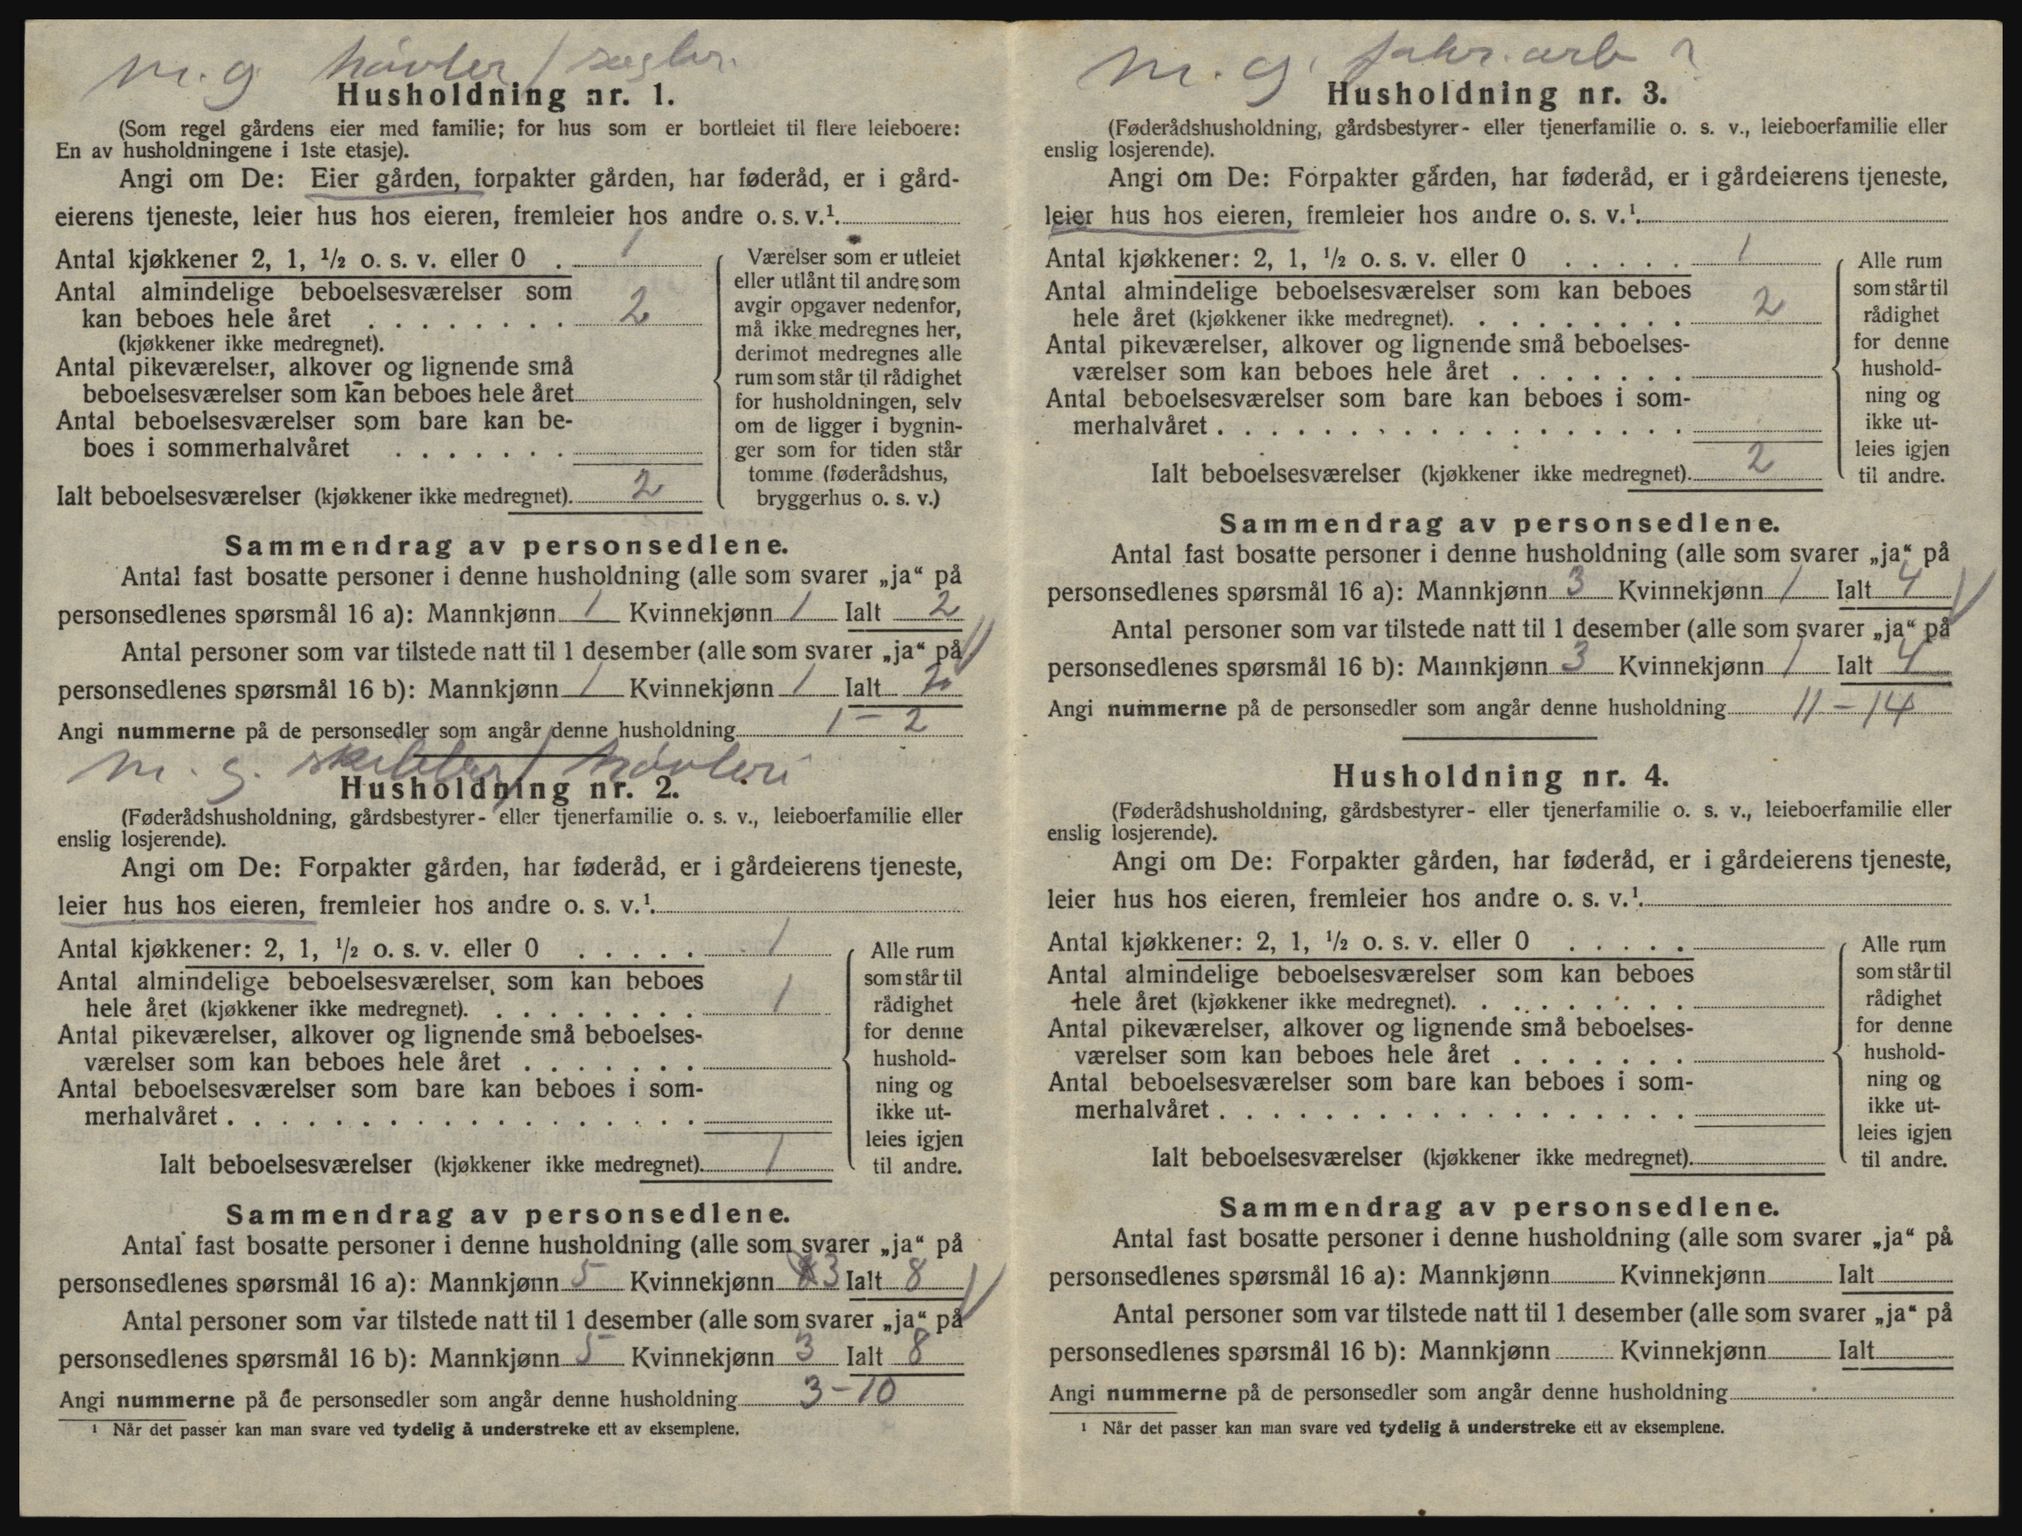 m. g. høvler / sagbr.
Husholdning nr. 1.
(Som regel gårdens eier med familie; for hus som er bortleiet til flere leieboere:
En av husholdningene i 1ste etasje).
Angi om De: Eier gården, forpakter gården, har føderåd, er i gård-
eierens tjeneste, leier hus hos eieren, fremleier hos andre o. s. v.¹.
Antal kjøkkener 2, 1, ½ o. s. v. eller 0 . 1
Antal almindelige beboelsesværelser som
kan beboes hele året . . . . . . . . 2
(kjøkkener ikke medregnet).
Antal pikeværelser, alkover og lignende små
beboelsesværelser som kan beboes hele året
Antal beboelsesværelser som bare kan be-
boes i sommerhalvåret . . . . . . .
Ialt beboelsesværelser (kjøkkener ikke medregnet). 2
Værelser som er utleiet
eller utlånt til andre som
avgir opgaver nedenfor,
må ikke medregnes her,
derimot medregnes alle
rum som står til rådighet
for husholdningen, selv
om de ligger i bygnin-
ger som for tiden står
tomme (føderådshus,
bryggerhus o. s. v.)
Sammendrag av personsedlene.
Antal fast bosatte personer i denne husholdning (alle som svarer „ja“ på
personsedlenes spørsmål 16 a): Mannkjønn 1 Kvinnekjønn 1 Ialt 2
Antal personer som var tilstede natt til 1 desember (alle som svarer „ja“ på
personsedlenes spørsmål 16 b): Mannkjønn 1 Kvinnekjønn 1 Ialt 2
Angi nummerne på de personsedler som angår denne husholdning 1 – 2
m. g. / høvleri
Husholdning nr. 2.
(Føderådshusholdning, gårdsbestyrer- eller tjenerfamilie o. s. v., leieboerfamilie eller
enslig losjerende).
Angi om De: Forpakter gården, har føderåd, er i gårdeierens tjeneste,
leier hus hos eieren, fremleier hos andre o. s. v.¹.
Antal kjøkkener: 2, 1, ½ o. s. v. eller 0 . . . . . 1
Antal almindelige beboelsesværelser som kan beboes
hele året (kjøkkener ikke medregnet). . . . . . . . . 1
Antal pikeværelser, alkover og lignende små beboelses-
værelser som kan beboes hele året . . . . . . .
Antal beboelsesværelser som bare kan beboes i som-
merhalvåret . . . . . . . . . . . . . . . . . .
Ialt beboelsesværelser (kjøkkener ikke medregnet). 1
Alle rum
som står til
rådighet
for denne
hushold-
ning og
ikke ut-
leies igjen
til andre.
Sammendrag av personsedlene.
Antal fast bosatte personer i denne husholdning (alle som svarer „ja“ på
personsedlenes spørsmål 16 a): Mannkjønn 5 Kvinnekjønn 3 Ialt 8
Antal personer som var tilstede natt til 1 desember (alle som svarer „ja“ på
personsedlenes spørsmål 16 b): Mannkjønn 5 Kvinnekjønn 3 Ialt 8
Angi nummerne på de personsedler som angår denne husholdning 3 – 10
¹ Når det passer kan man svare ved tydelig å understreke ett av eksemplene.
m. g. fabr. arb ?
Husholdning nr. 3.
(Føderådshusholdning, gårdsbestyrer- eller tjenerfamilie o. s. v., leieboerfamilie eller
enslig losjerende).
Angi om De: Forpakter gården, har føderåd, er i gårdeierens tjeneste,
leier hus hos eieren, fremleier hos andre o. s. v.¹.
Antal kjøkkener: 2, 1, ½ o. s. v. eller 0 . . . . . 1
Antal almindelige beboelsesværelser som kan beboes
hele året (kjøkkener ikke medregnet). . . . . . . . . 2
Antal pikeværelser, alkover og lignende små beboelses-
værelser som kan beboes hele året . . . . . . .
Antal beboelsesværelser som bare kan beboes i som-
merhalvåret . . . . . . . . . . . . . . . . . .
Ialt beboelsesværelser (kjøkkener ikke medregnet). 2
Alle rum
som står til
rådighet
for denne
hushold-
ning og
ikke ut-
leies igjen
til andre.
Sammendrag av personsedlene.
Antal fast bosatte personer i denne husholdning (alle som svarer „ja“ på
personsedlenes spørsmål 16 a): Mannkjønn 3 Kvinnekjønn 1 Ialt 4
Antal personer som var tilstede natt til 1 desember (alle som svarer „ja“ på
personsedlenes spørsmål 16 b): Mannkjønn 3 Kvinnekjønn 1 Ialt 4
Angi nummerne på de personsedler som angår denne husholdning 11 – 14
Husholdning nr. 4.
(Føderådshusholdning, gårdsbestyrer- eller tjenerfamilie o. s. v., leieboerfamilie eller
enslig losjerende).
Angi om De: Forpakter gården, har føderåd, er i gårdeierens tjeneste,
leier hus hos eieren, fremleier hos andre o. s. v.¹.
Antal kjøkkener: 2, 1, ½ o. s. v. eller 0 . . . . .
Antal almindelige beboelsesværelser som kan beboes
hele året (kjøkkener ikke medregnet). . . . . . . . .
Antal pikeværelser, alkover og lignende små beboelses-
værelser som kan beboes hele året . . . . . . .
Antal beboelsesværelser som bare kan beboes i som-
merhalvåret . . . . . . . . . . . . . . . . . .
Ialt beboelsesværelser (kjøkkener ikke medregnet).
Alle rum
som står til
rådighet
for denne
hushold-
ning og
ikke ut-
leies igjen
til andre.
Sammendrag av personsedlene.
Antal fast bosatte personer i denne husholdning (alle som svarer „ja“ på
personsedlenes spørsmål 16 a): Mannkjønn Kvinnekjønn Ialt
Antal personer som var tilstede natt til 1 desember (alle som svarer „ja“ på
personsedlenes spørsmål 16 b): Mannkjønn Kvinnekjønn Ialt
Angi nummerne på de personsedler som angår denne husholdning
¹ Når det passer kan man svare ved tydelig å understreke ett av eksemplene.